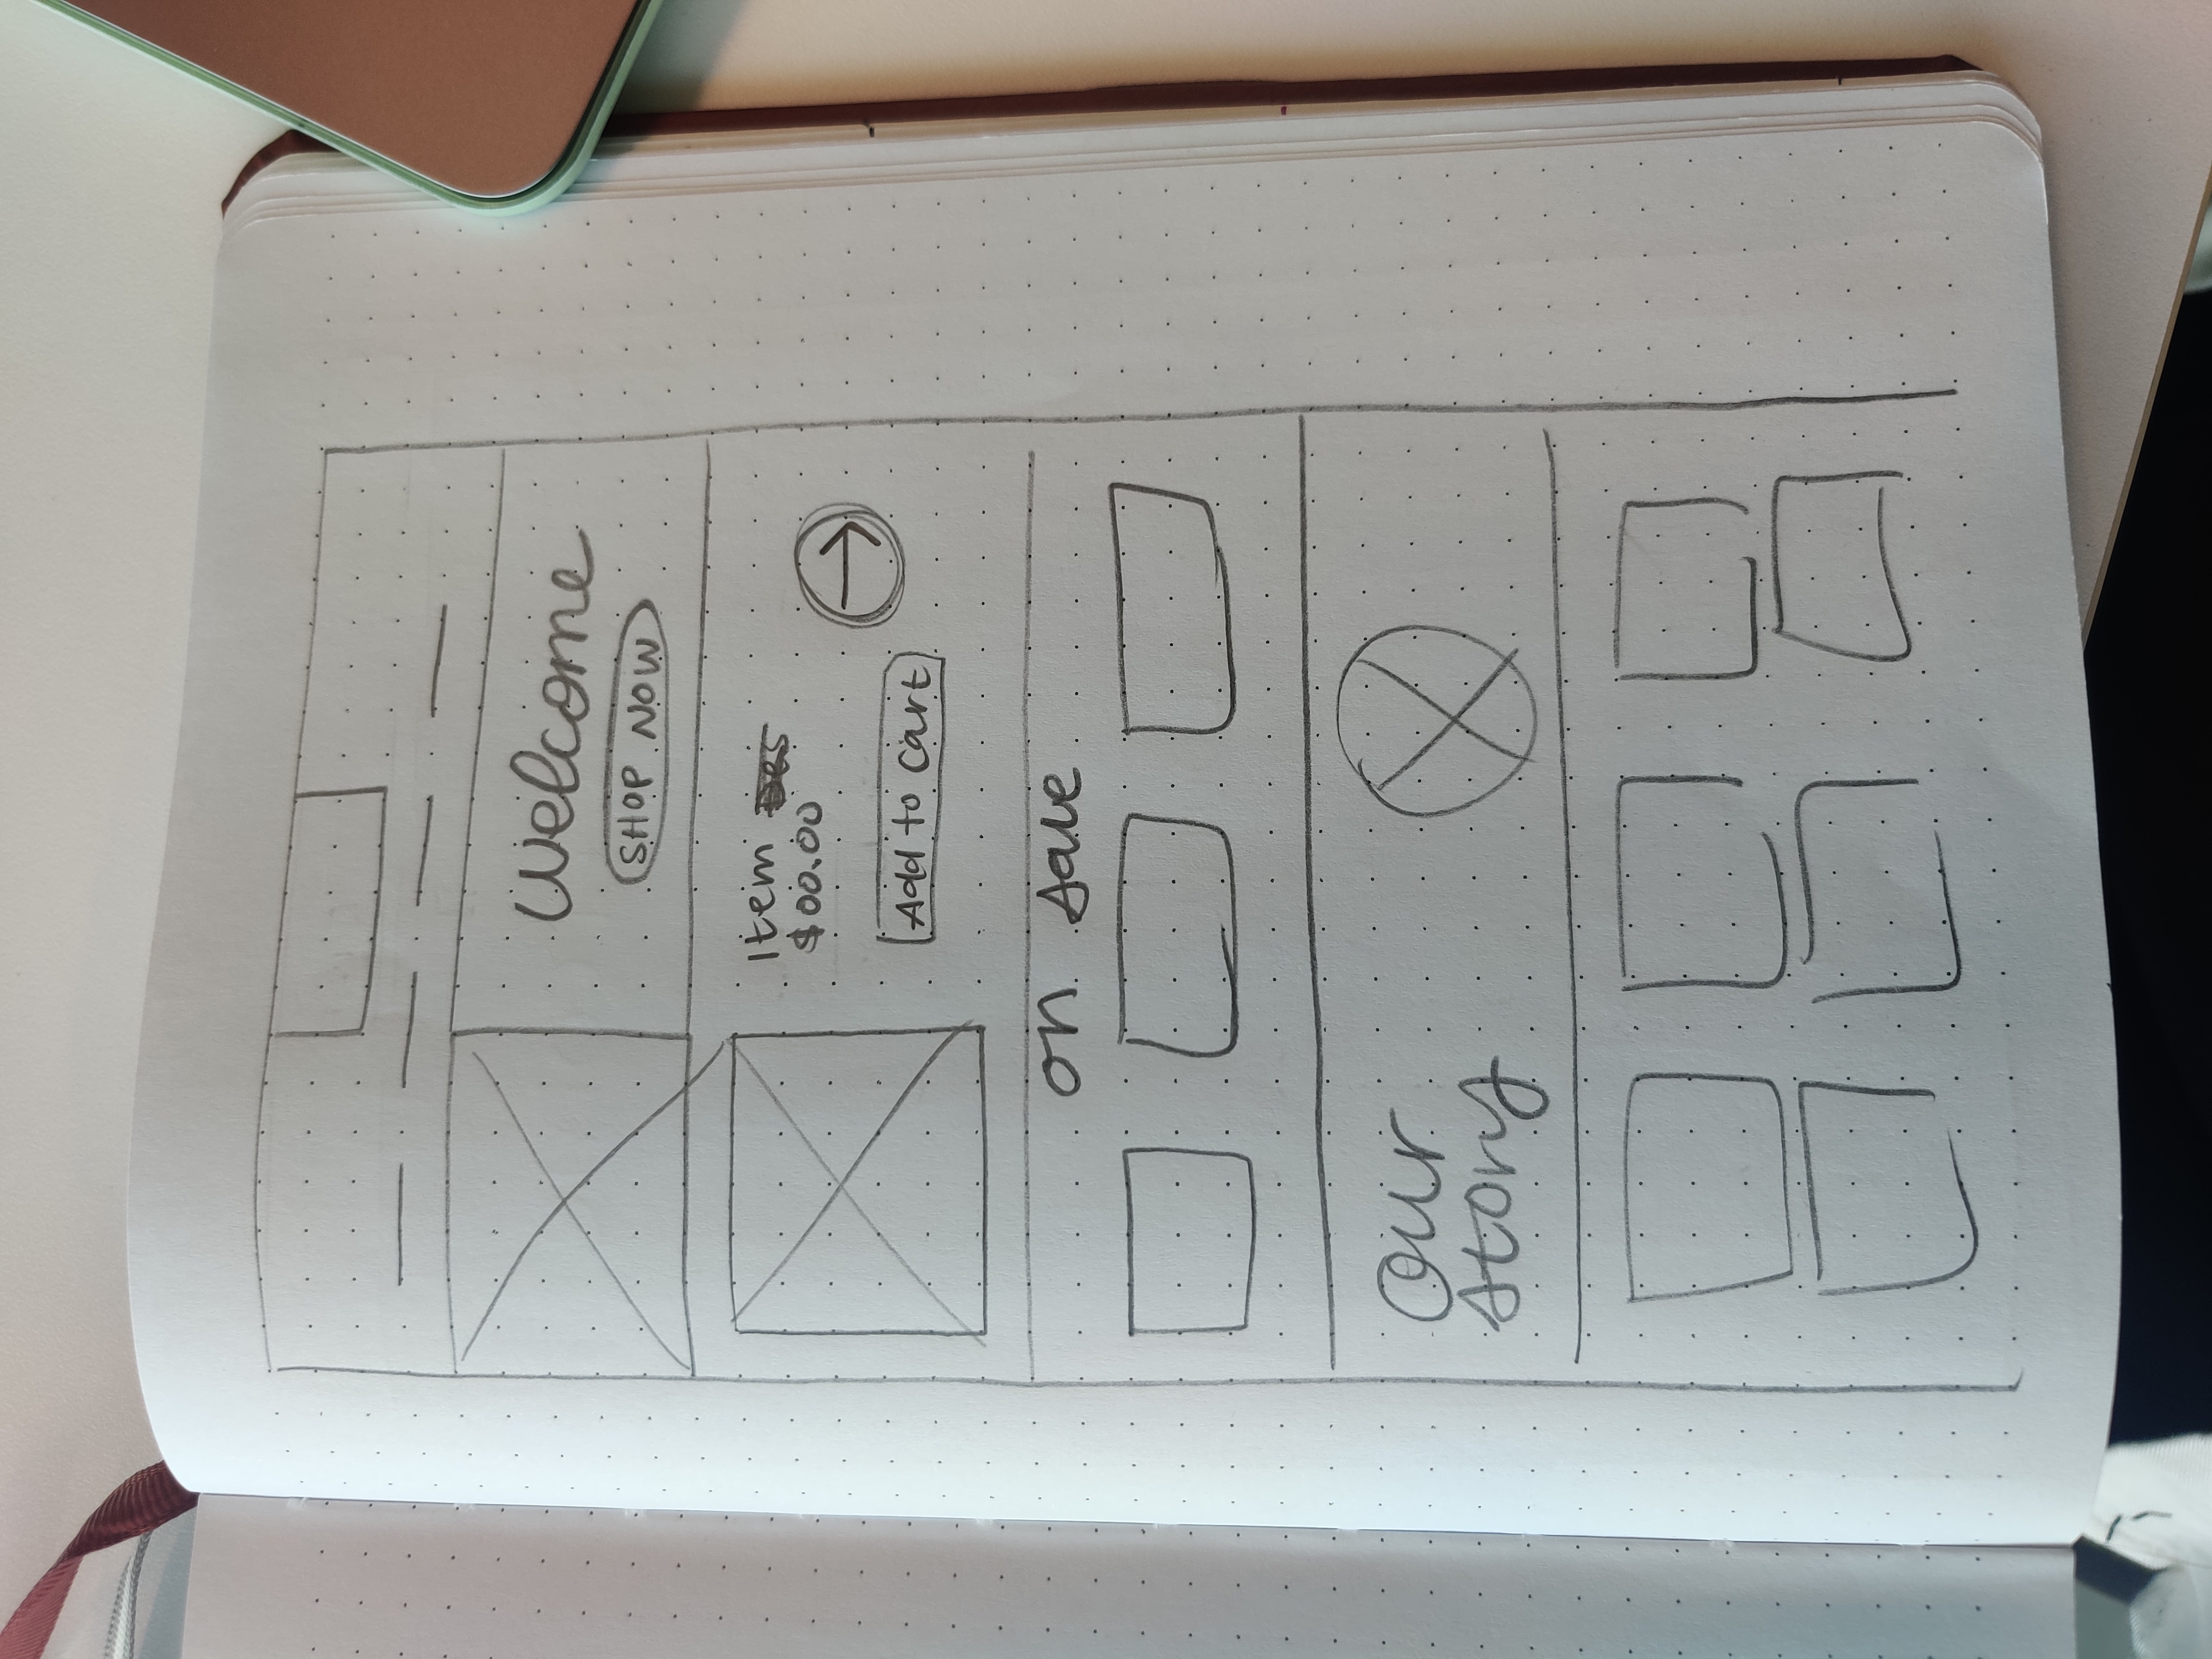 Welcome
SHOP NOW
Item
$00.00
Add to cart
on sale
our
story